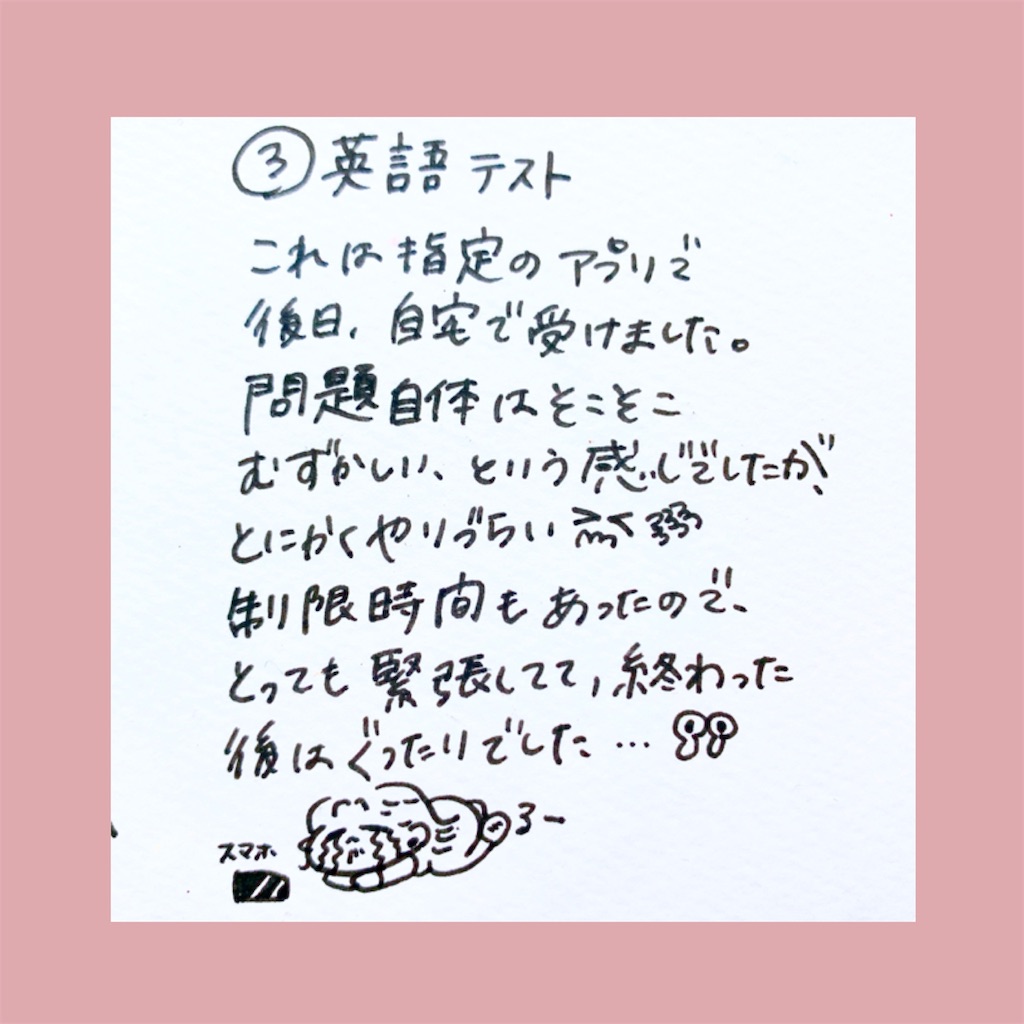 ③英語テスト
これは指定のアプリで
後日、自宅で受けました。
問題自体はそこそこ
むずかしい、という感じでしたが、
とにかくやりづらい
制限時間もあったので、
とっても緊張してて、終わった
後はぐったりでした…
ろー
スマホ